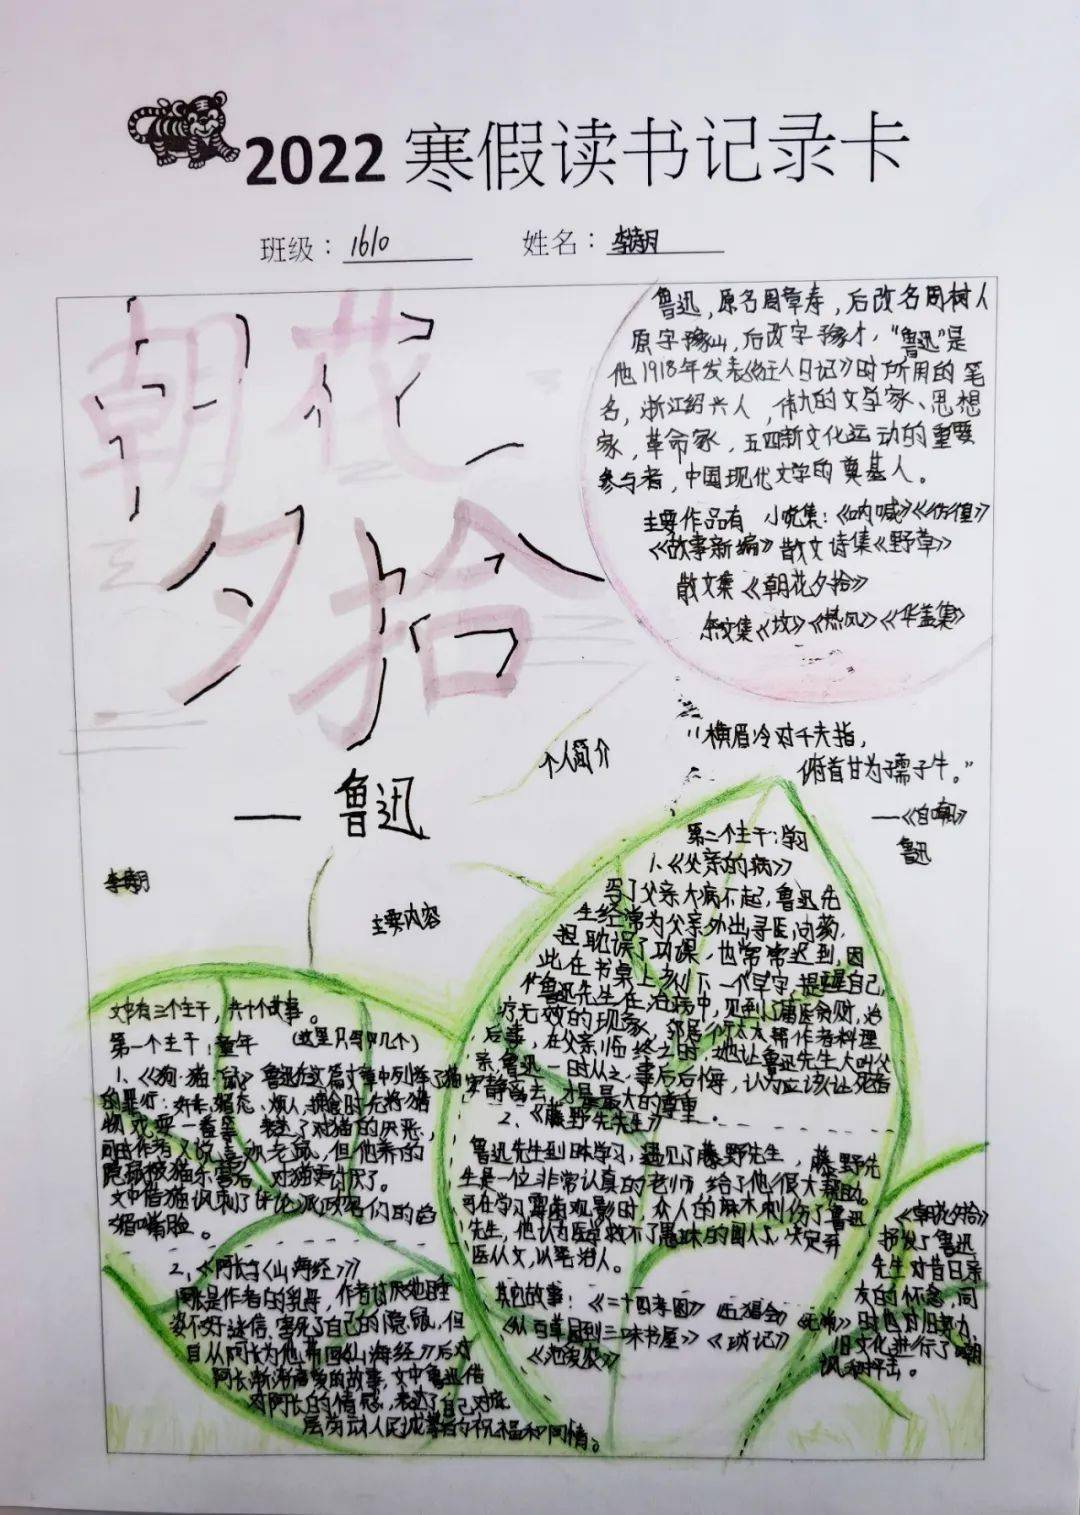 2022寒假读书记录卡
班级：1610 姓名：李朝月
朝花
夕拾
— 鲁迅
鲁迅，原名周章寿，后改名周树人
原字豫山，后改字豫才，“鲁迅”是
他1918年发表《狂人日记》时所用的笔
名，浙江绍兴人，伟大的文学家、思想
家，革命家，五四新文化运动的重要
参与者，中国现代文学的奠基人。
主要作品有 小说集：《呐喊》《彷徨》
《故事新编》散文诗集《野草》
散文集《朝花夕拾》
杂文集《坟》《热风》《华盖集》
个人简介
“横眉冷对千夫指，
俯首甘为孺子牛。”
—《自嘲》
鲁迅
主要内容
文中有三个主干，共十个故事。
第一个主干：童年 （这里只写几个）
1、《狗·猫·鼠》鲁迅在这篇文章中列举了猫
的罪行：
物戏耍一番等 表达了对猫的厌恶，
同时作者又说喜欢老鼠，但他养的
隐鼠被猫 对猫更讨厌了。
文中借猫讽刺了评论派政客们的
嘴脸。
2、《阿长与〈山海经〉》
阿长是作者的乳母，作者讨厌她睡
姿不好 迷信、害死了自己的隐鼠，但
自从阿长为他带回《山海经》后对
阿长渐渐 的故事，文中鲁迅借
对阿长的情感，表达了自己对底
层劳动人民 的祝福和同情。
第二个主干：学习
1、《父亲的病》
写了父亲大病不起，鲁迅先
生经常为父亲外出寻医问药，
担耽误了功课，也常常迟到，因
此在书桌上刻下一个早字，提醒自己，
鲁迅先生在治病中，见到了庸医贪财，治
疗无效的现象，邻居衍太太帮作者料理
后事，在父亲临终之时，她让鲁迅先生大叫父
亲，鲁迅一时从之，事后后悔，认为应该让死者
安静离去，才是最大的尊重。
2、《藤野先生》
鲁迅先生到日本学习，遇见了藤野先生，藤野先
生是一位非常认真的老师，给了他很大帮助。
可在学习霉菌观影时，众人的麻木刺伤了鲁迅
先生，他认为医学救不了愚昧的国人，决定弃
医从文，以笔治人。
其它故事：《二十四孝图》《五猖会》《无常》
《从百草园到三味书屋》《琐记》
《范爱农》
《朝花夕拾》
抒发了鲁迅
先生对昔日亲
友的怀念，同
时也对旧势力、
旧文化进行了嘲
讽和抨击。